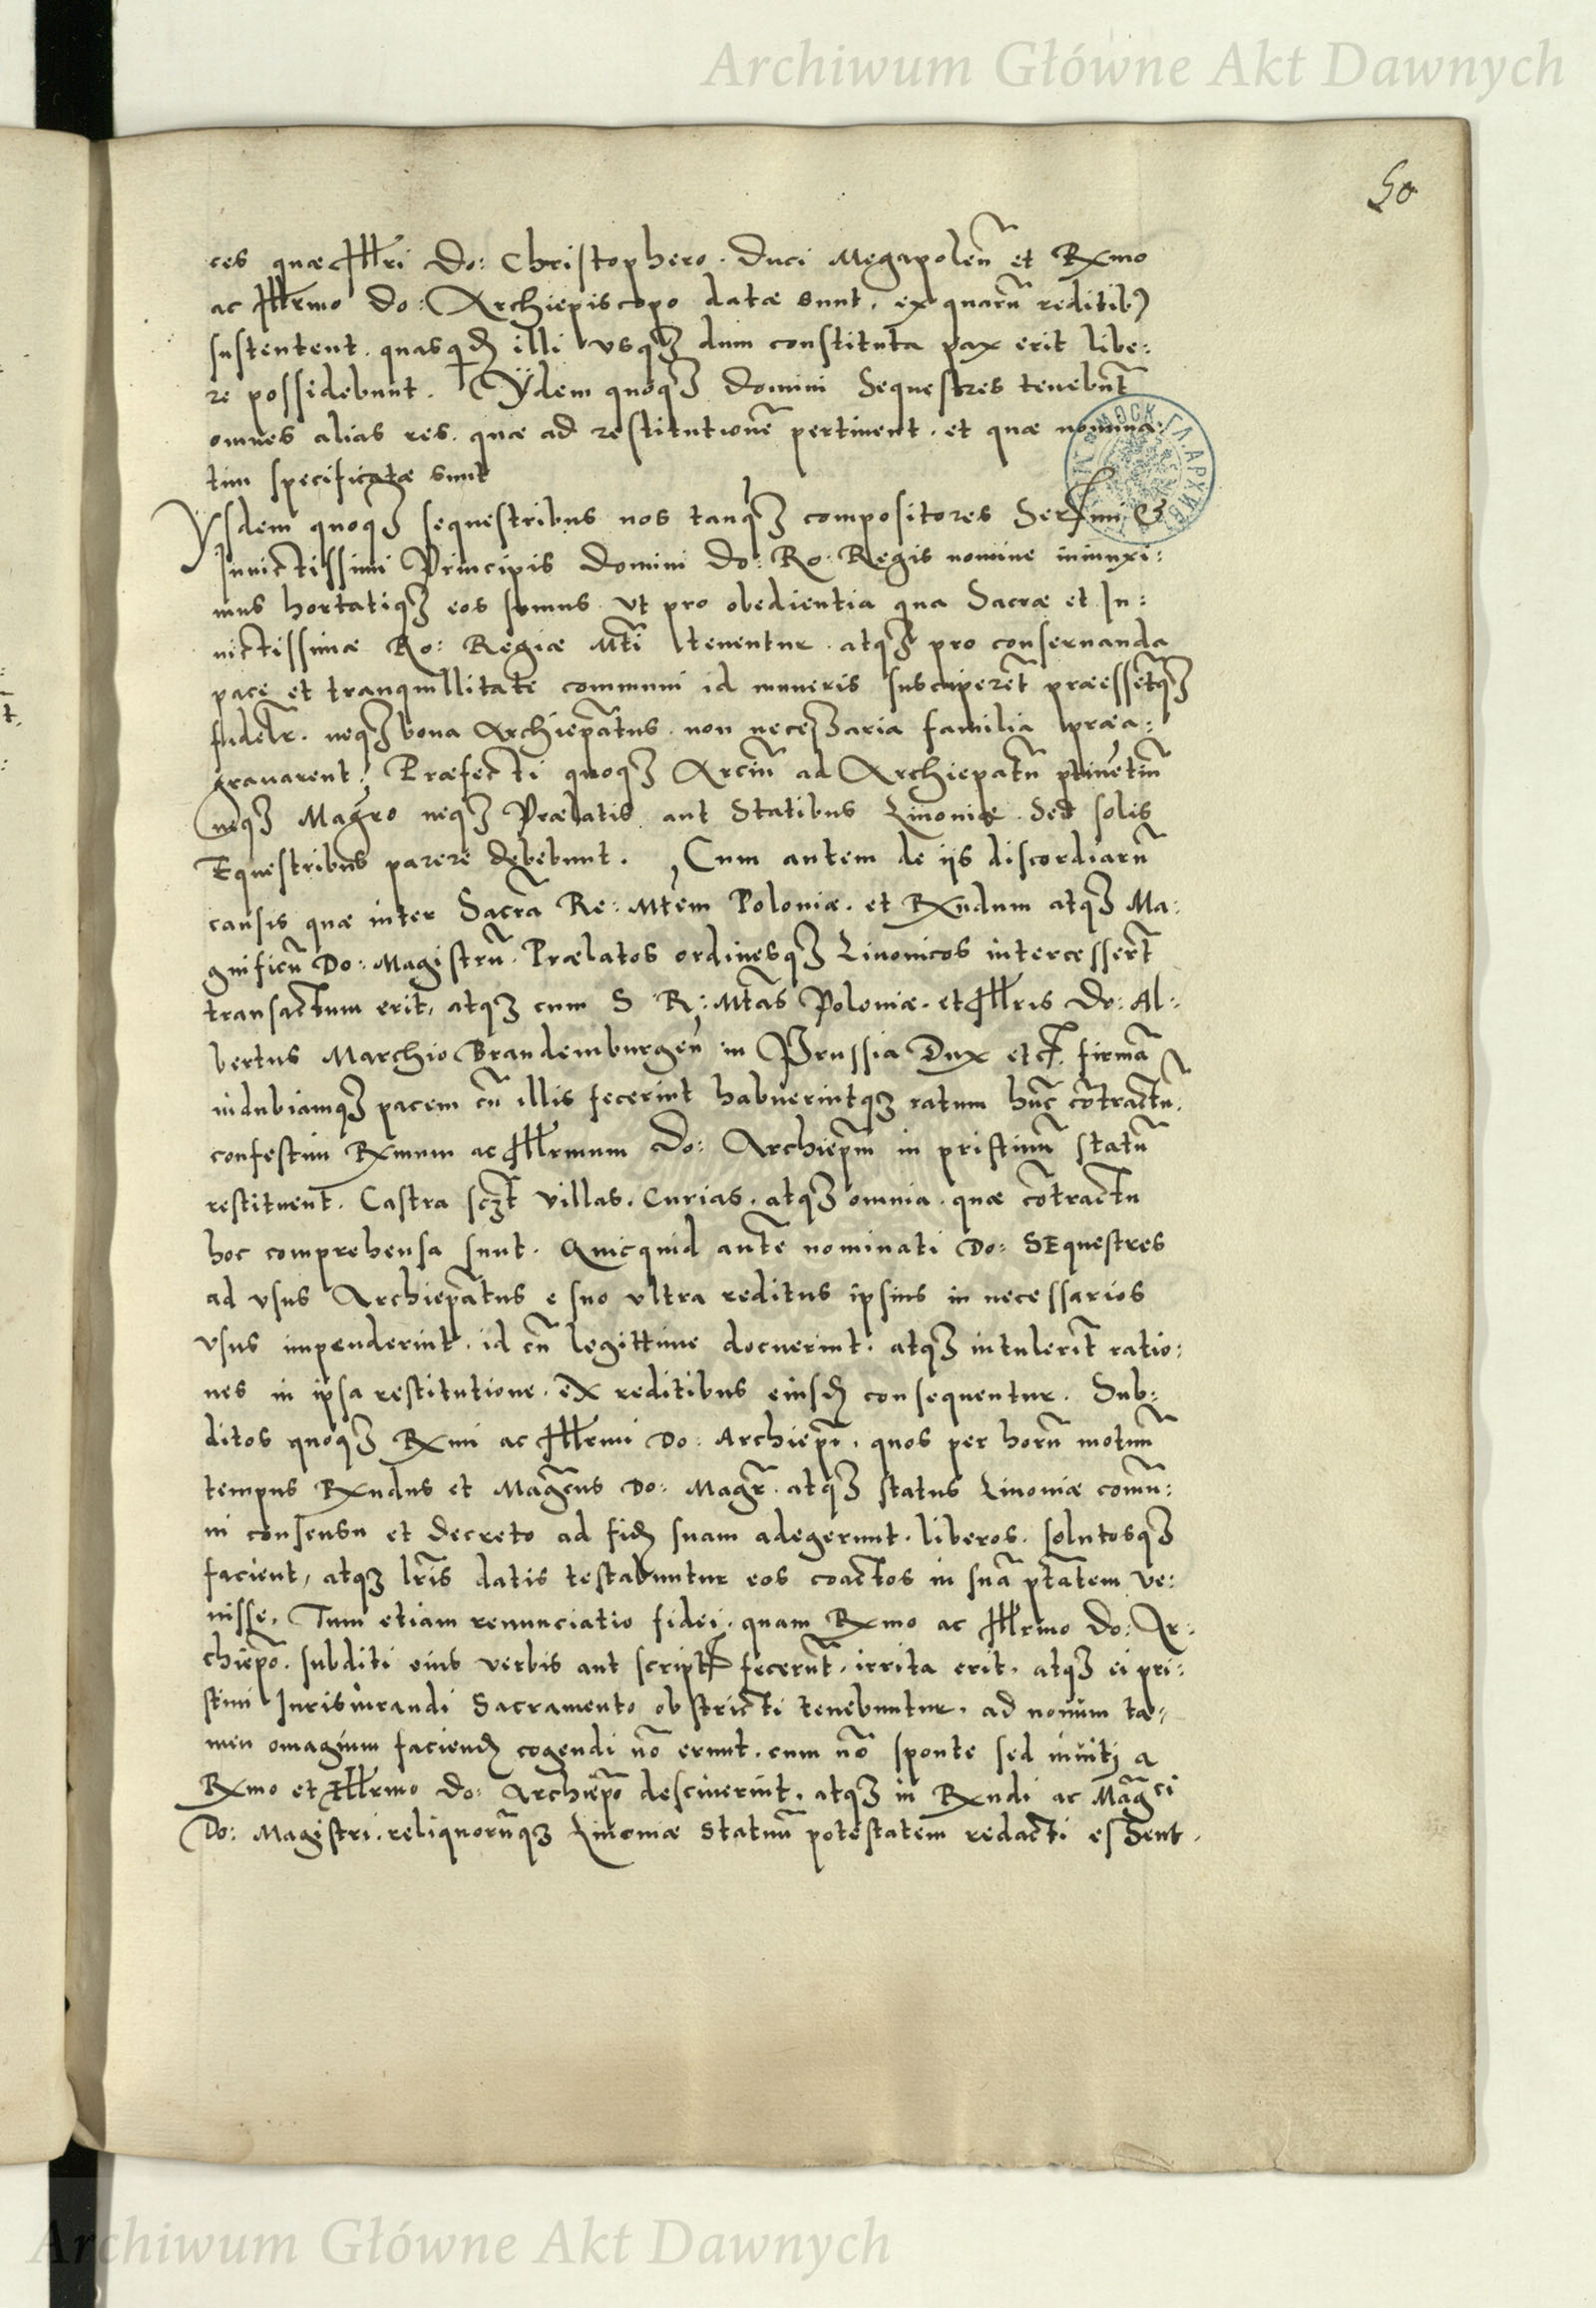 Archiwum Główne Akt Dawnych
50
ces quæ Illri Do: Christophero. Duci Megapoleñ et Rxmo
ac Illrmo Do: Archiepiscopo datæ sunt, ex quarũ reditibꝫ
sustentent. quasqꝫ illi vsqꝫ dum constituta pax erit libe:
re possidebunt. Ÿdem quoqꝫ Domini Sequestres tenebũt
omnes alias res. quæ ad restitutionẽ pertinent. et quæ nomina:
tim specificatæ sunt
Ysdem quoqꝫ sequestribus nos tanqꝫ compositores Serxmi &
Inuictissimi Principis Domini Do: Ro: Regis nomine iniunxi:
mus hortatiqꝫ eos sumus vt pro obedientia qua Sacræ et In:
uictissimæ Ro: Regiæ Mti tenentur. atqꝫ pro conseruanda
pace et tranquillitate communi id muneris susciperẽt præessẽtqꝫ
fideltr. neqꝫ bona Archiepãtus. non necessaria familia præa:
grauarent. Præfecti quoqꝫ Arciũ ad Archiepatũ ptinẽtiũ
neqꝫ Magro neqꝫ Prælatis aut Statibus Liuoniæ. Sed solis
Equestribus parere debebunt. Cum autem de iis discordiarũ
causis quæ inter Sacrã Re: Mtem Poloniæ. et Rxndum atqꝫ Ma:
gnificũ Do: Magistrũ. Prælatos ordinesqꝫ Liuonicos intercessert
transactum erit, atqꝫ cum S R: Mtas Poloniæ. et Illris Do: Al:
bertus Marchio Brandemburgeñ in Prussia Dux etc. firmã
indubiamqꝫ pacem cũ illis fecerint habuerintqꝫ ratum hũc cõtractũ.
confestim Rxmum ac Illrmum Do: Archiepm in pristinũ statũ
restituent. Castra sczt villas. Curias. atqꝫ omnia. quæ cõtractu
hoc comprehensa sunt. Quicquid autẽ nominati Do: SEquestres
ad vsus Archiepãtus e suo vltra reditus ipsius in necessarios
vsus impenderint. id cũ legittime docuerint. atqꝫ intulerĩt ratio:
nes in ipsa restitutione. ex reditibus eiusd consequentur. Sub:
ditos quoqꝫ Rxmi ac Illrmi Do: Archiepi. quos per horũ motuũ
tempus Rxndus et Magcus Do: Magr. atqꝫ status Liuoniæ comũ:
ni consensu et decreto ad fid suam adegerunt. liberos. solutosqꝫ
facient, atqꝫ lris datis testabuntur eos coactos in suã ptatem ve:
nisse. Tum etiam renunciatio fidei. quam Rxmo ac Illrmo Do: Ar:
chiepo. subditi eius verbis aut scripto fecerũt. irrita erit. atqꝫ ei pri:
stini Iurisiurandi Sacramento obstricti tenebuntur. ad nouum ta:
men omagium faciend cogendi nõ erunt. cum nõ sponte sed inuiti a
Rxmo et Illrmo Do: Archiepo desciuerint. atqꝫ in Rxndi ac Magci
Do: Magistri. reliquorũqꝫ Liuoniæ Statuũ potestatem redacti essent.
Archiwum Główne Akt Dawnych